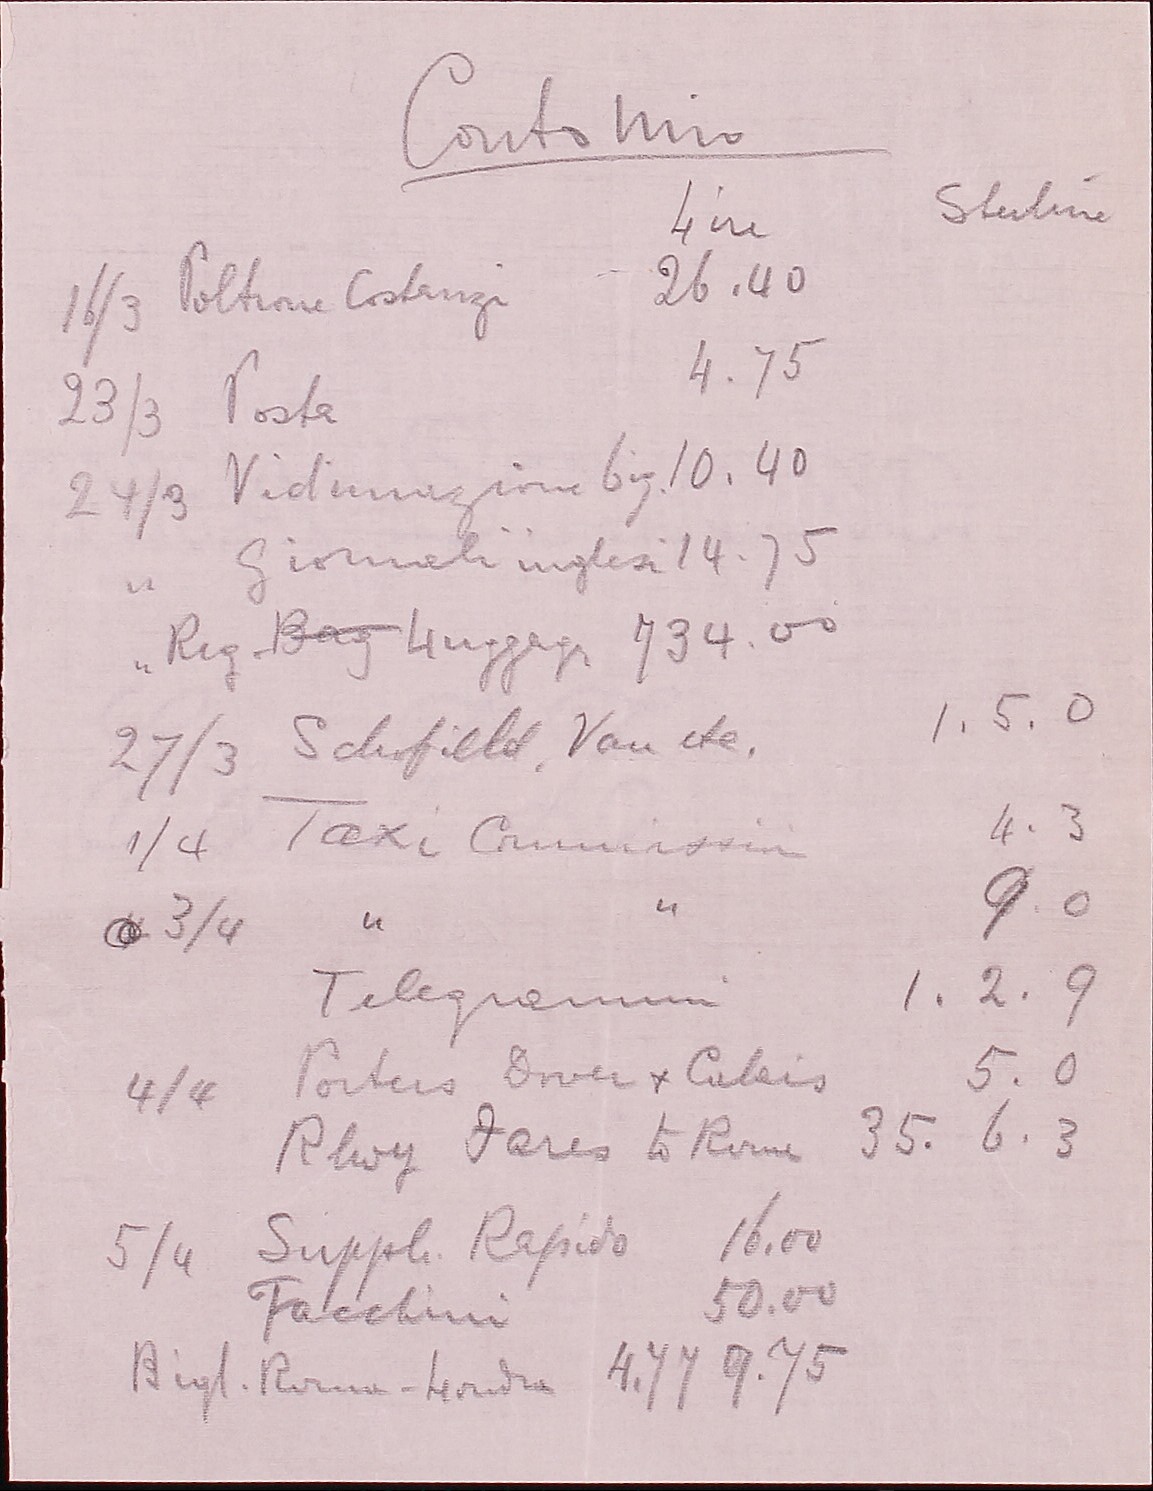 Conto Mio
Lire Sterline
16/3 Poltrone Costanzi - 26.40
23/3 Posta 4.75
24/3 Vidimazione big. 10.40
" Giornali inglesi 14.75
" Reg. Bag Luggage 734.00
27/3 Schofield, Van etc. 1.5.0
1/4 Taxi Commission 4.3
3/4 " " 9.0
Telegrammi 1.2.9
4/4 Porters Dover + Calais 5.0
Rlwy Fares to Rome 35.6.3
5/4 Suppl. Rapido 16.00
Facchini 50.00
Bigl. Roma-Londra 4.779.75